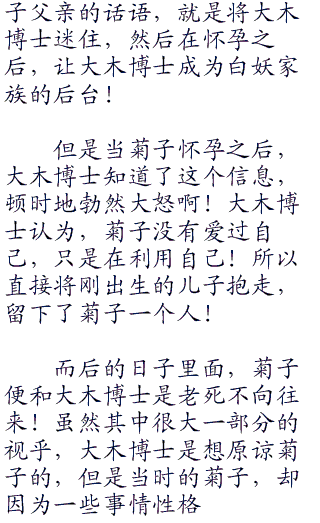 子父亲的话语，就是将大木
博士迷住，然后在怀孕之
后，让大木博士成为白妖家
族的后台！
但是当菊子怀孕之后，
大木博士知道了这个信息，
顿时地勃然大怒啊！大木博
士认为，菊子没有爱过自
己，只是在利用自己！所以
直接将刚出生的儿子抱走，
留下了菊子一个人！
而后的日子里面，菊子
便和大木博士是老死不向往
来！虽然其中很大一部分的
视乎，大木博士是想原谅菊
子的，但是当时的菊子，却
因为一些事情性格